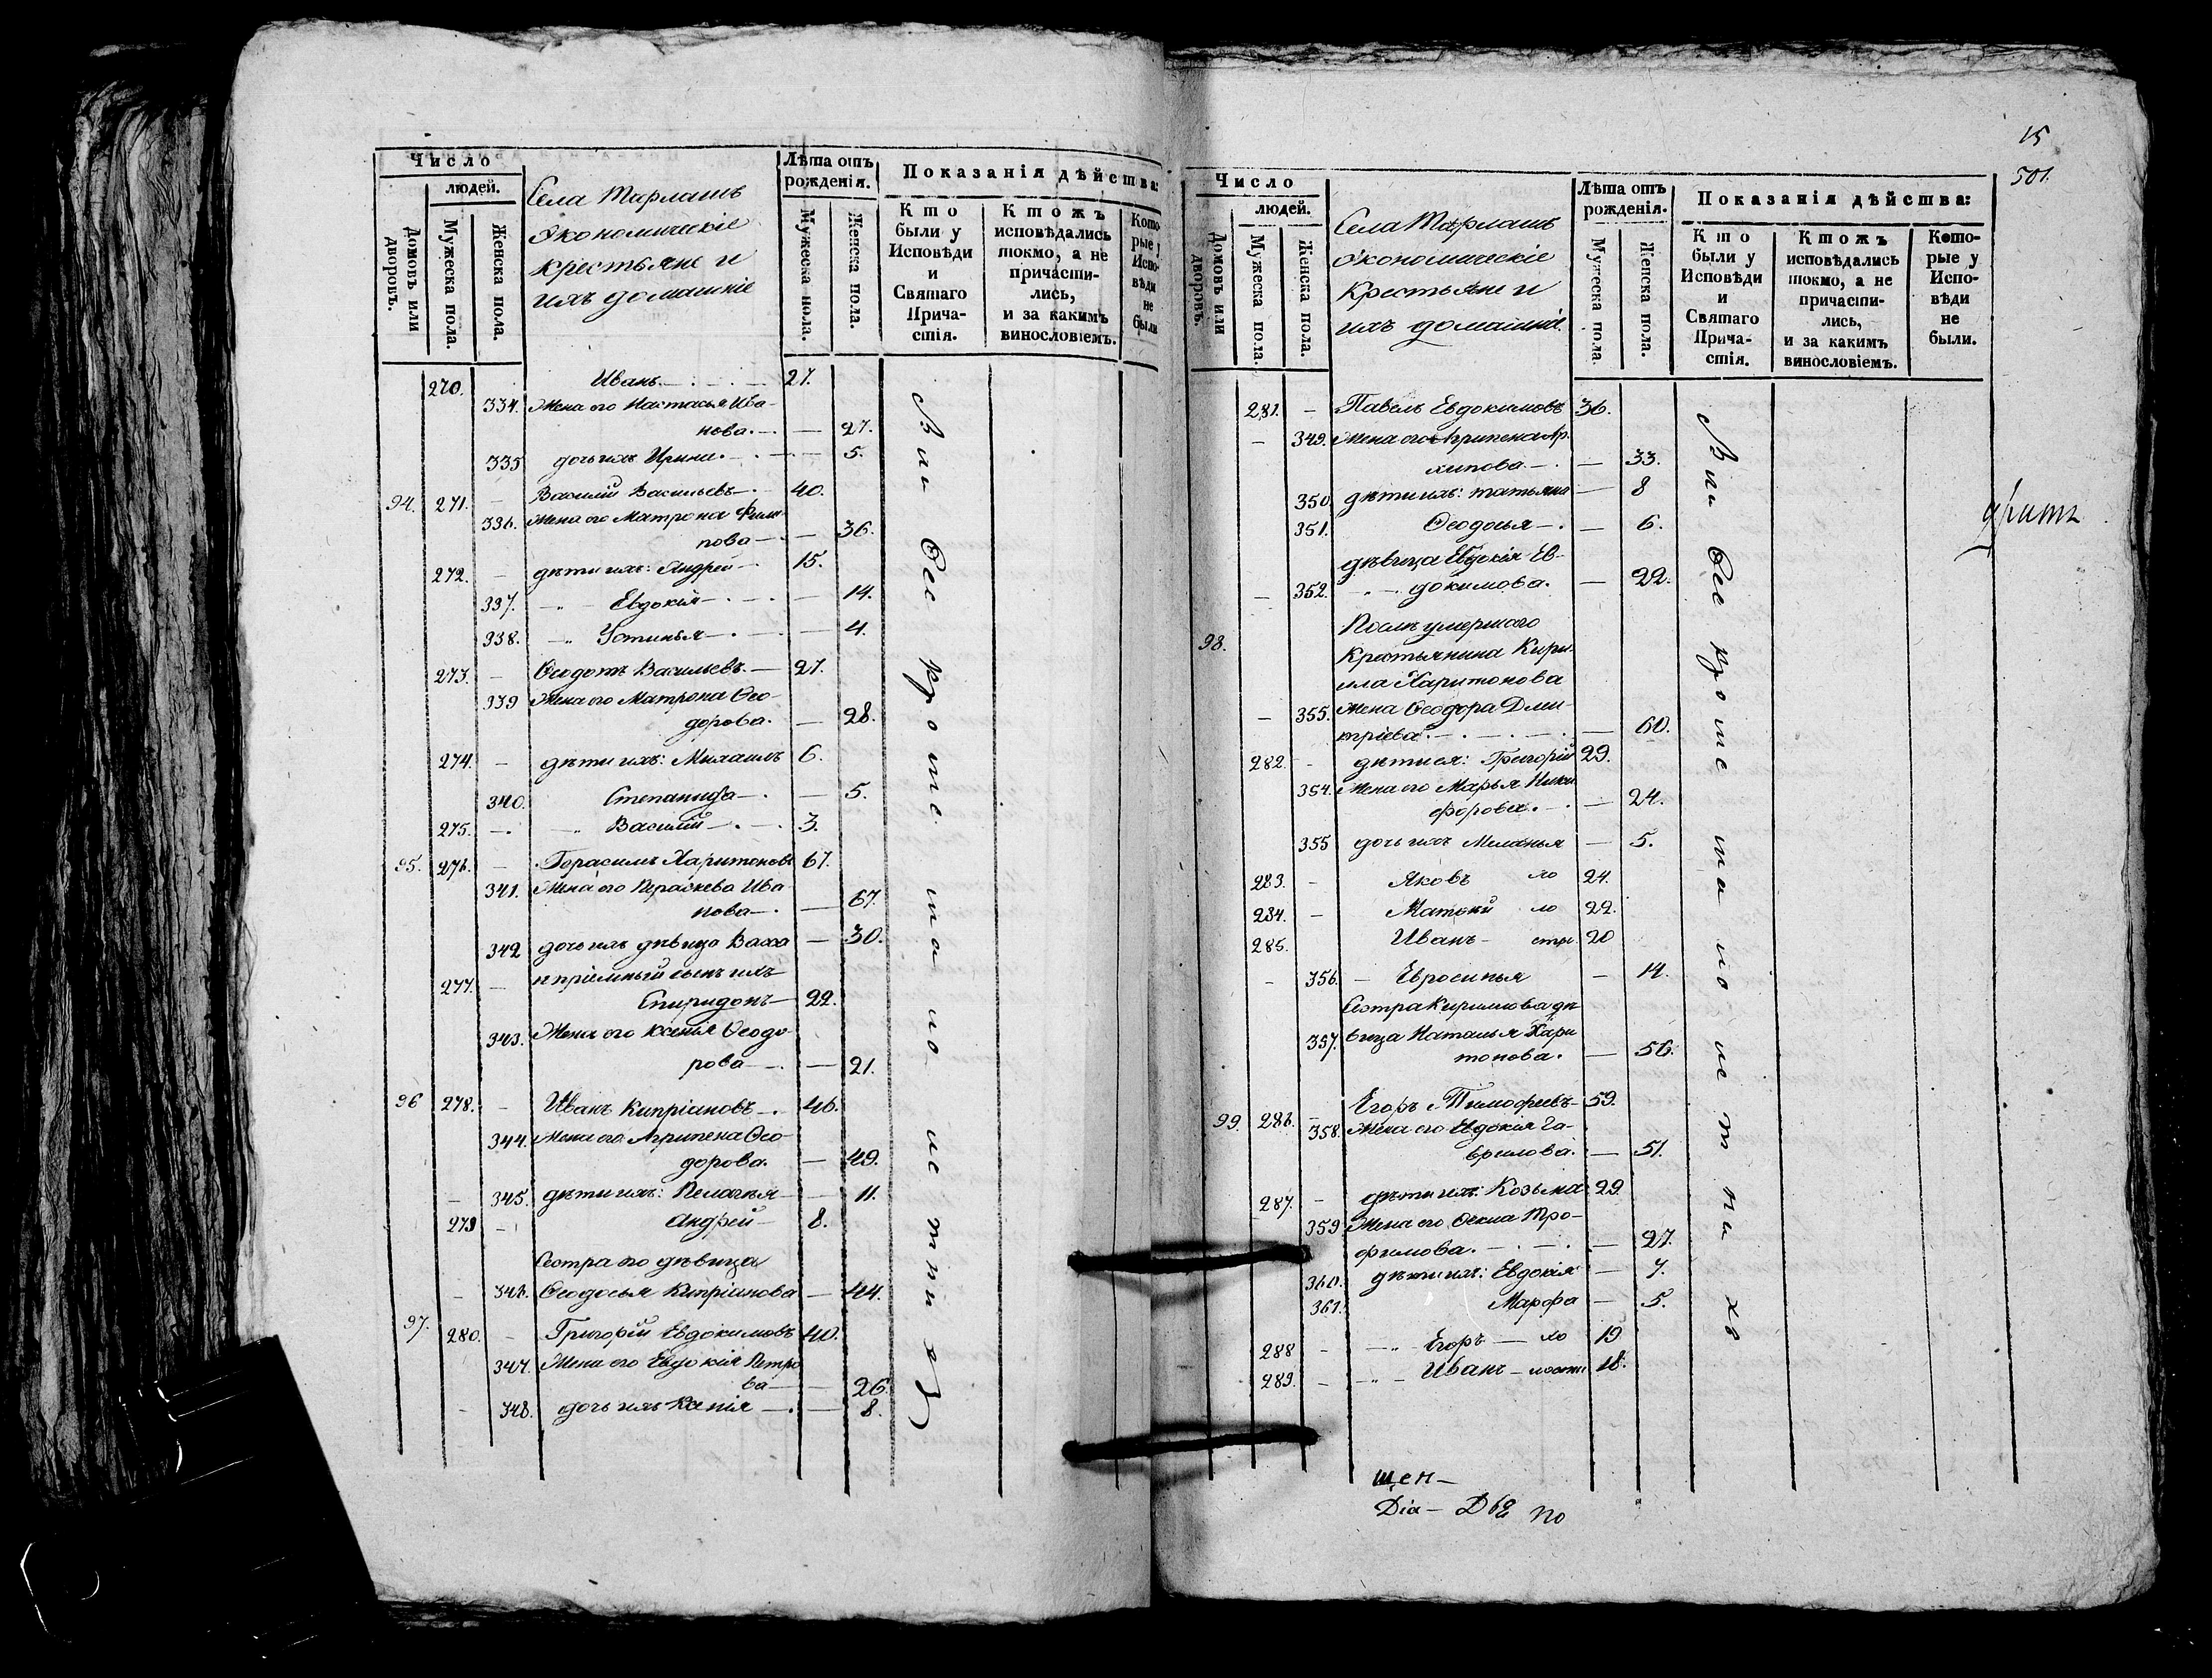 Число
людей.
Домовъ или дворовъ.
Мужеска пола.
Женска пола.
Села Тарлашъ
экономическіе
крестьяне и
ихъ домашніе
Лѣта отъ
рожденія.
Мужеска пола.
Женска пола.
Показанія дѣйства:
Кто
были у
Исповѣди
и
Святаго
Прича-
стія.
Ктожъ
исповѣдались
токмо, а не
причасти-
лись,
и за какимъ
винословіемъ.
Кото-
рые у
Испо-
вѣди
не
были
270. Иванъ 27.
334. Жена его Настасья Ива-
нова. 27.
335 дочь ихъ Ирина 5.
94. 271. Василій Васильевъ 40.
336. Жена его Матрона Фили-
пова 36.
272. дѣти ихъ: Андрей 15.
337. Евдокія 14.
338. Устинья 4.
273. Ѳеодотъ Васильевъ 27.
339 Жена его Матрона Ѳео-
дорова. 28.
274. дѣти ихъ: Михаилъ 6.
340. Степанида 5.
275. Василій 3.
95. 276. Герасимъ Харитоновъ 67.
341. Жена его Пераскева Ива-
нова 67.
342 дочь ихъ дѣвица Васса 30.
277. пріемный сынъ ихъ
Спиридонъ 22.
343. Жена его Ксенія Ѳеодо-
рова 21.
96 278. Иванъ Кипріановъ 46.
344. Жена его Агрипена Ѳео-
дорова. 49.
345. дѣти ихъ: Пелагея 11.
279 Андрей 8.
Сестра его дѣвица
346. Ѳеодосья Кипріанова 44.
97. 280. Григорій Евдокимовъ 40.
347. Жена его Евдокія Петро
ва 26.
348. дочь ихъ Ксенія 8.
15
501.
Число
людей.
Домовъ или дворовъ.
Мужеска пола.
Женска пола.
Села Тарлашъ
экономическіе
Крестьяне и
ихъ домашніе
Лѣта отъ
рожденія.
Мужеска пола.
Женска пола.
Показанія дѣйства:
Кто
были у
Исповѣди
и
Святаго
Прича-
стія.
Ктожъ
исповѣдались
токмо, а не
причасти-
лись,
и за какимъ
винословіемъ.
Кото-
рые у
Испо-
вѣди
не
были.
281. Павелъ Евдокимовъ 36.
349. Жена его Агрипена Ар-
хипова 33.
350 дѣти ихъ: татьяна 8
351. Ѳеодосья 6.
дѣвица Евдокія Ев-
352. докимова. 22.
98. Послѣ умершаго
Крестьянина Кири-
ила Харитонова
355. Жена Ѳеодора Дми-
тріева 60.
282. дѣти ея: Григорій 29.
354. Жена его Марья Ники
форова. 24.
355 дочь ихъ Меланья 5.
283. Яковъ хо 24.
284. Матвей ло 22.
285. Иванъ 20
356. Евросинья 14.
Сестра Кирилова дѣ
357. вица Наталья Хари
тонова. 56.
99. 286. Егоръ Тимофеевъ 59.
358. Жена его Евдокія Га-
врилова. 51.
287. дѣти ихъ: Козьма 29.
359 Жена его Ѳекла Тро-
фимова. 27.
360. дѣти ихъ: Евдокія 7.
361. Марфа 5.
288 Егоръ хо 19
289. Иванъ 18.
щен-
Dia-